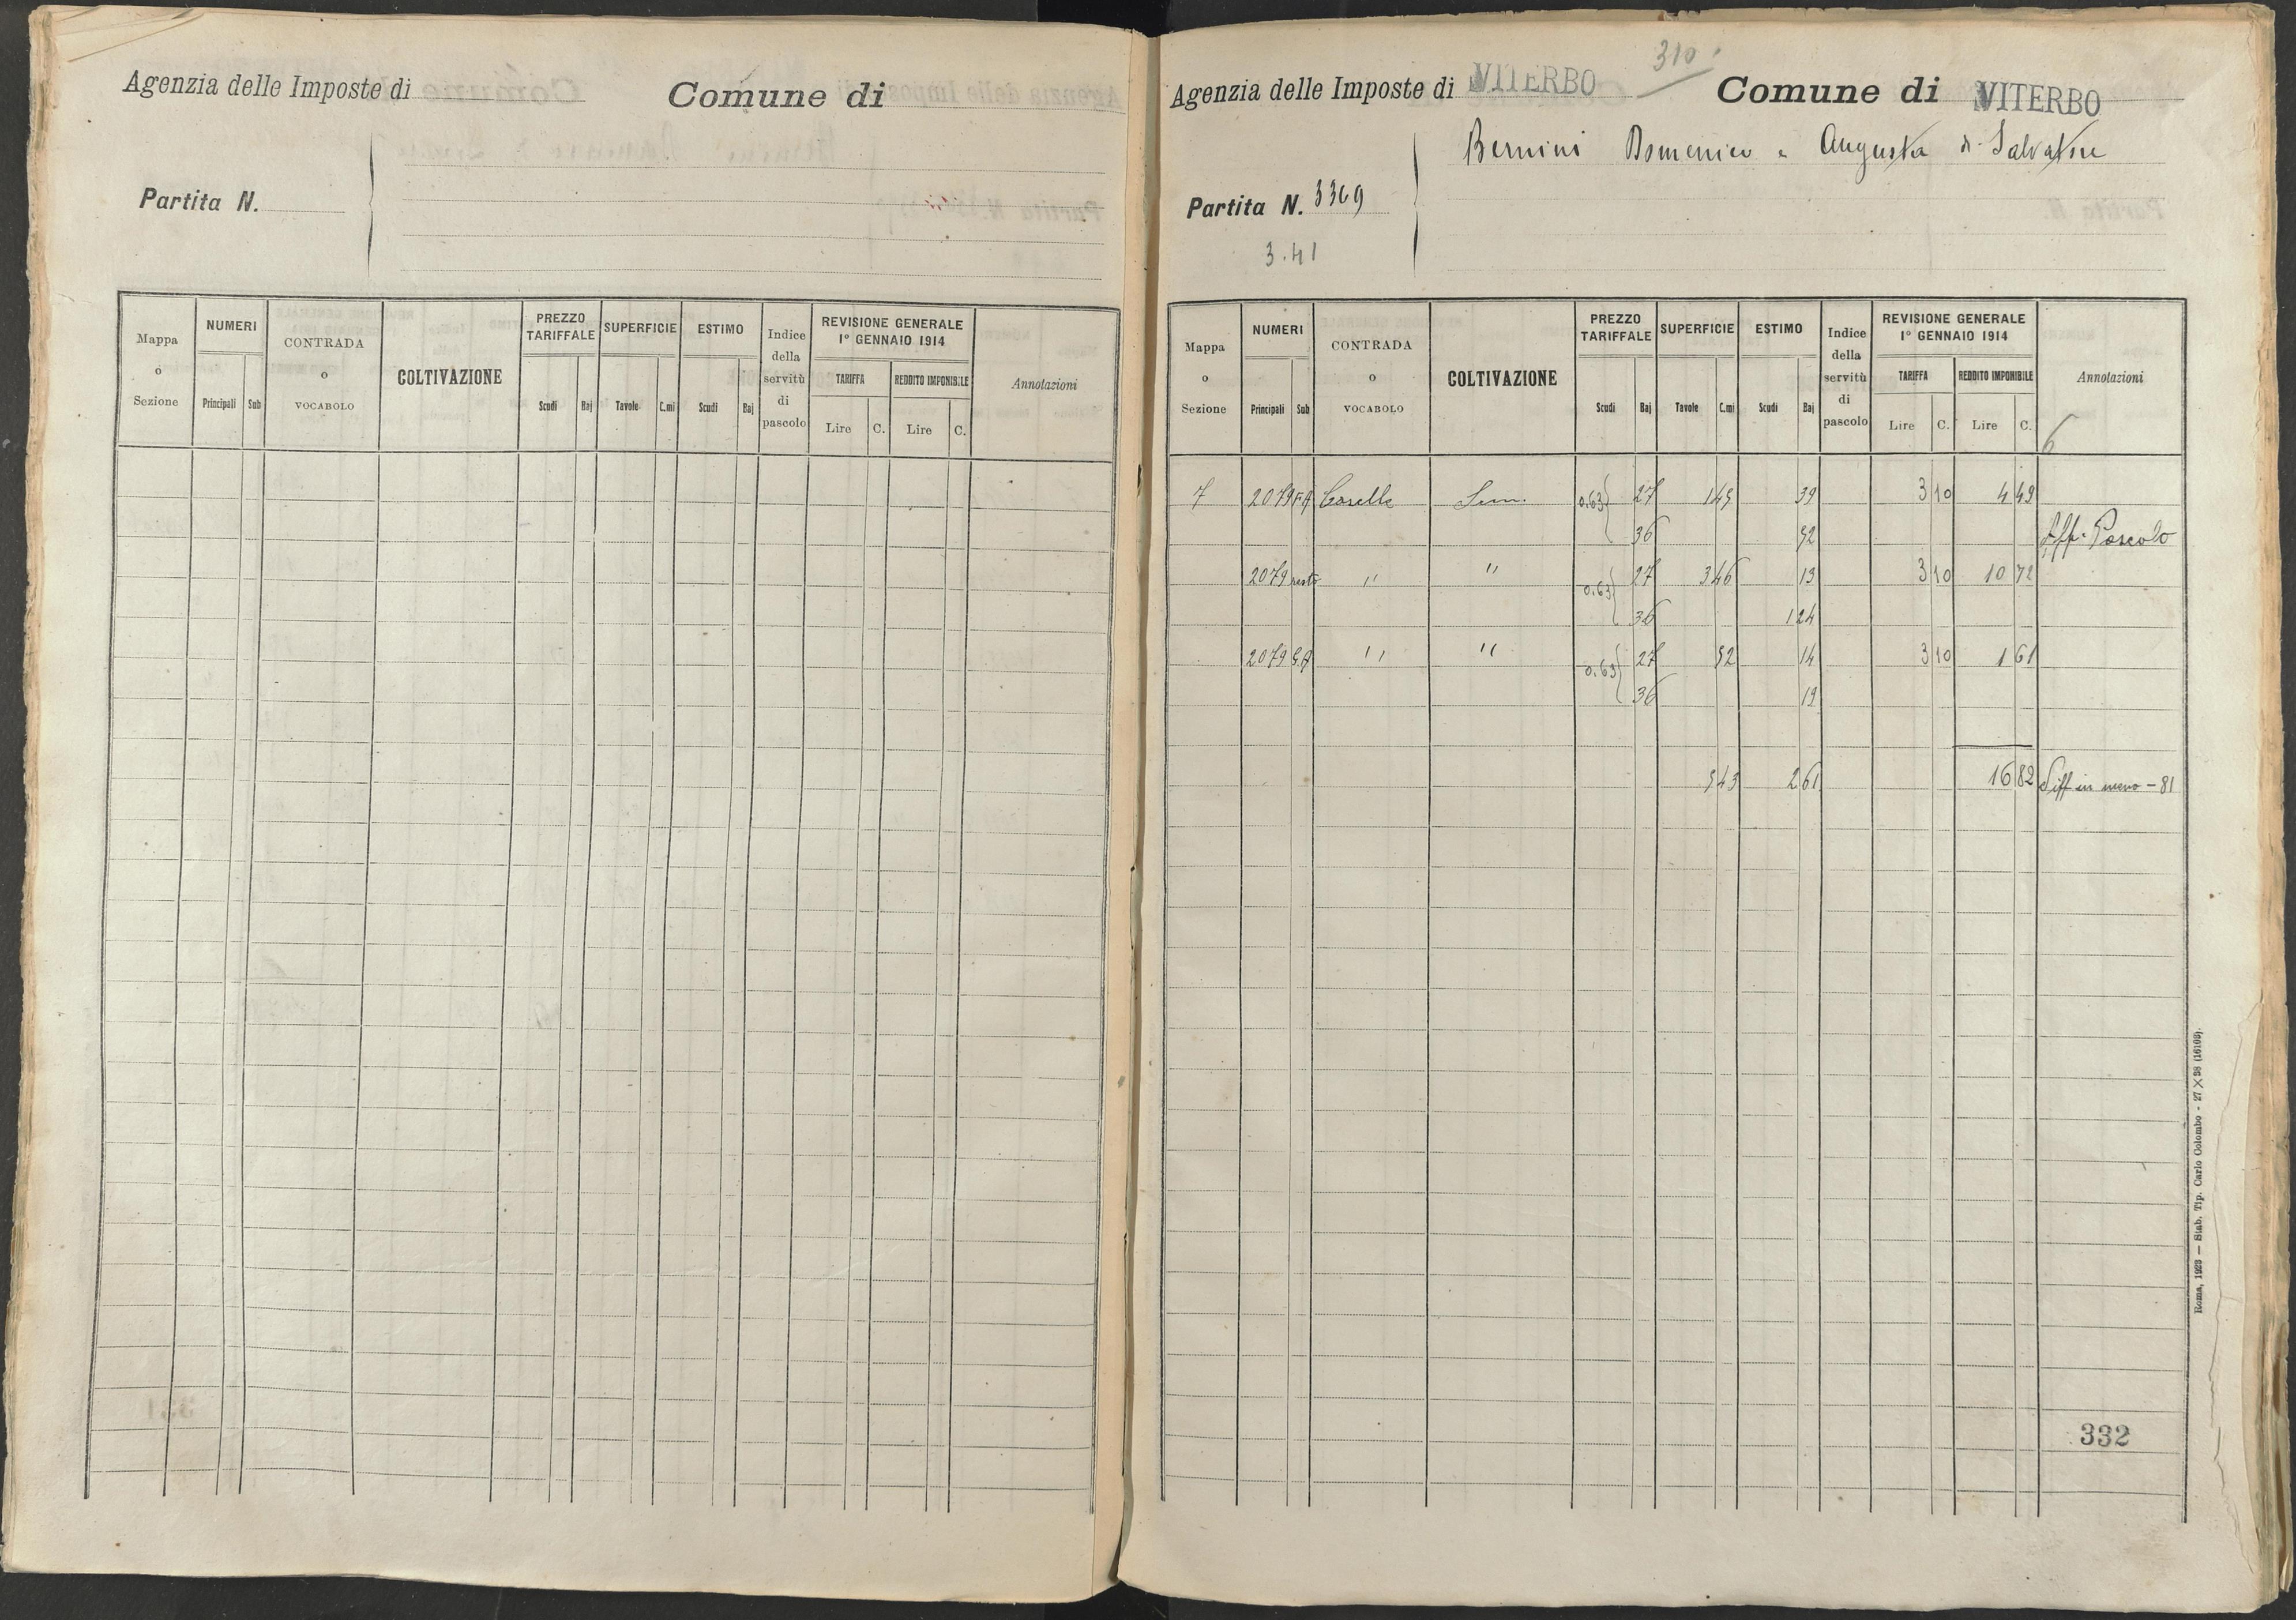 Agenzia delle Imposte di
Comune di
Partita N.
Mappa o Sezione
NUMERI
Principali Sub
CONTRADA o VOCABOLO
COLTIVAZIONE
PREZZO TARIFFALE
Scudi Baj
SUPERFICIE
Tavole C.mi
ESTIMO
Scudi Baj
Indice della servitù di pascolo
REVISIONE GENERALE
1º GENNAIO 1914
TARIFFA
Lire C.
REDDITO IMPONIBILE
Lire C.
Annotazioni
310
Agenzia delle Imposte di VITERBO
Comune di VITERBO
Bernini Domenico e Augusta di Salvatore
Partita N. 3369
3.41
Mappa o Sezione
NUMERI
Principali Sub
CONTRADA o VOCABOLO
COLTIVAZIONE
PREZZO TARIFFALE
Scudi Baj
SUPERFICIE
Tavole C.mi
ESTIMO
Scudi Baj
Indice della servitù di pascolo
REVISIONE GENERALE
1º GENNAIO 1914
TARIFFA
Lire C.
REDDITO IMPONIBILE
Lire C.
Annotazioni
6
7 2079 Caselle Sem. 0.63 27 145 39 3 10 4 49
36 52 Aff. Pascolo
2079 resto " " 0.63 27 346 13 3 10 10 72
36 124
2079 " " 0.63 27 52 14 3 10 1 61
36 19
543 261 16 82 Diff in meno - 81
Roma, 1923 — Stab. Tip. Carlo Colombo - 27 X 38 (16103).
332